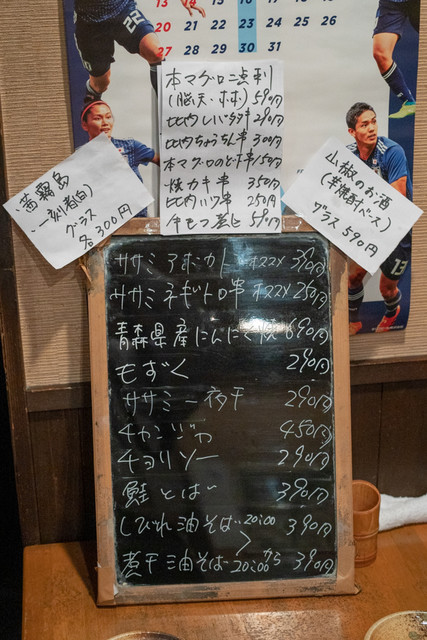 22
13 14 15 16 17 18 19
20 27 28 29 30 31
本マグロ二点刺
(脳天・ホホ) 590円
比内しいタタキ 290円
比内ちょうちん串 300円
本マグロのどチ串 150円
焼カキ串 350円
比内ハツ串 250円
牛モツ煮込 590円
茜霧島
、一刻者(白)
グラス
各300円
山椒のお酒
(芋焼酎ベース)
グラス590円
13
ササミアボカド オススメ 390円
ササミネギトロ串 オススメ 250円
青森県産にんにく焼 690円
もずく 290円
ササミ一夜干 290円
チャンジャ 450円
チョリソー 290円
鮭とば 390円
しびれ油そば 20:00 390円
>から
煮干油そば 20:00 390円